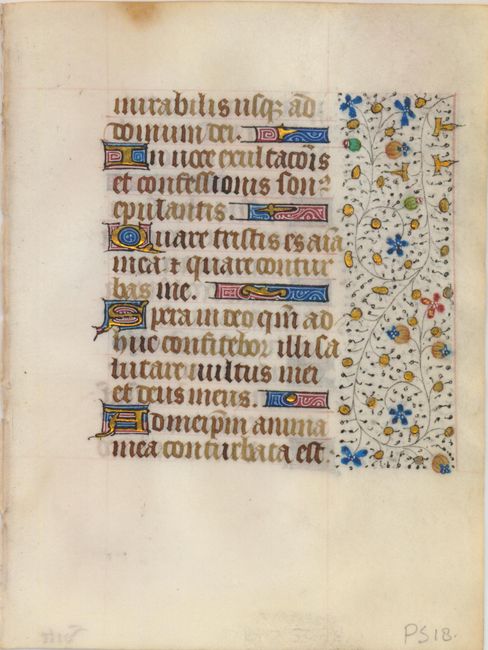 mirabilis usqȝ ad
domum dei.
In uoce exultacõis
et confessionis son⁹
epulantis.
Quare tristis es aĩa
mea ⁊ quare contur
bas me.
Spera in deo qm̃ ad
huc confitebor illi sa
lutare uultus mei
et deus meus.
Ad meip̃m anima
mea conturbata est.
PS 18.